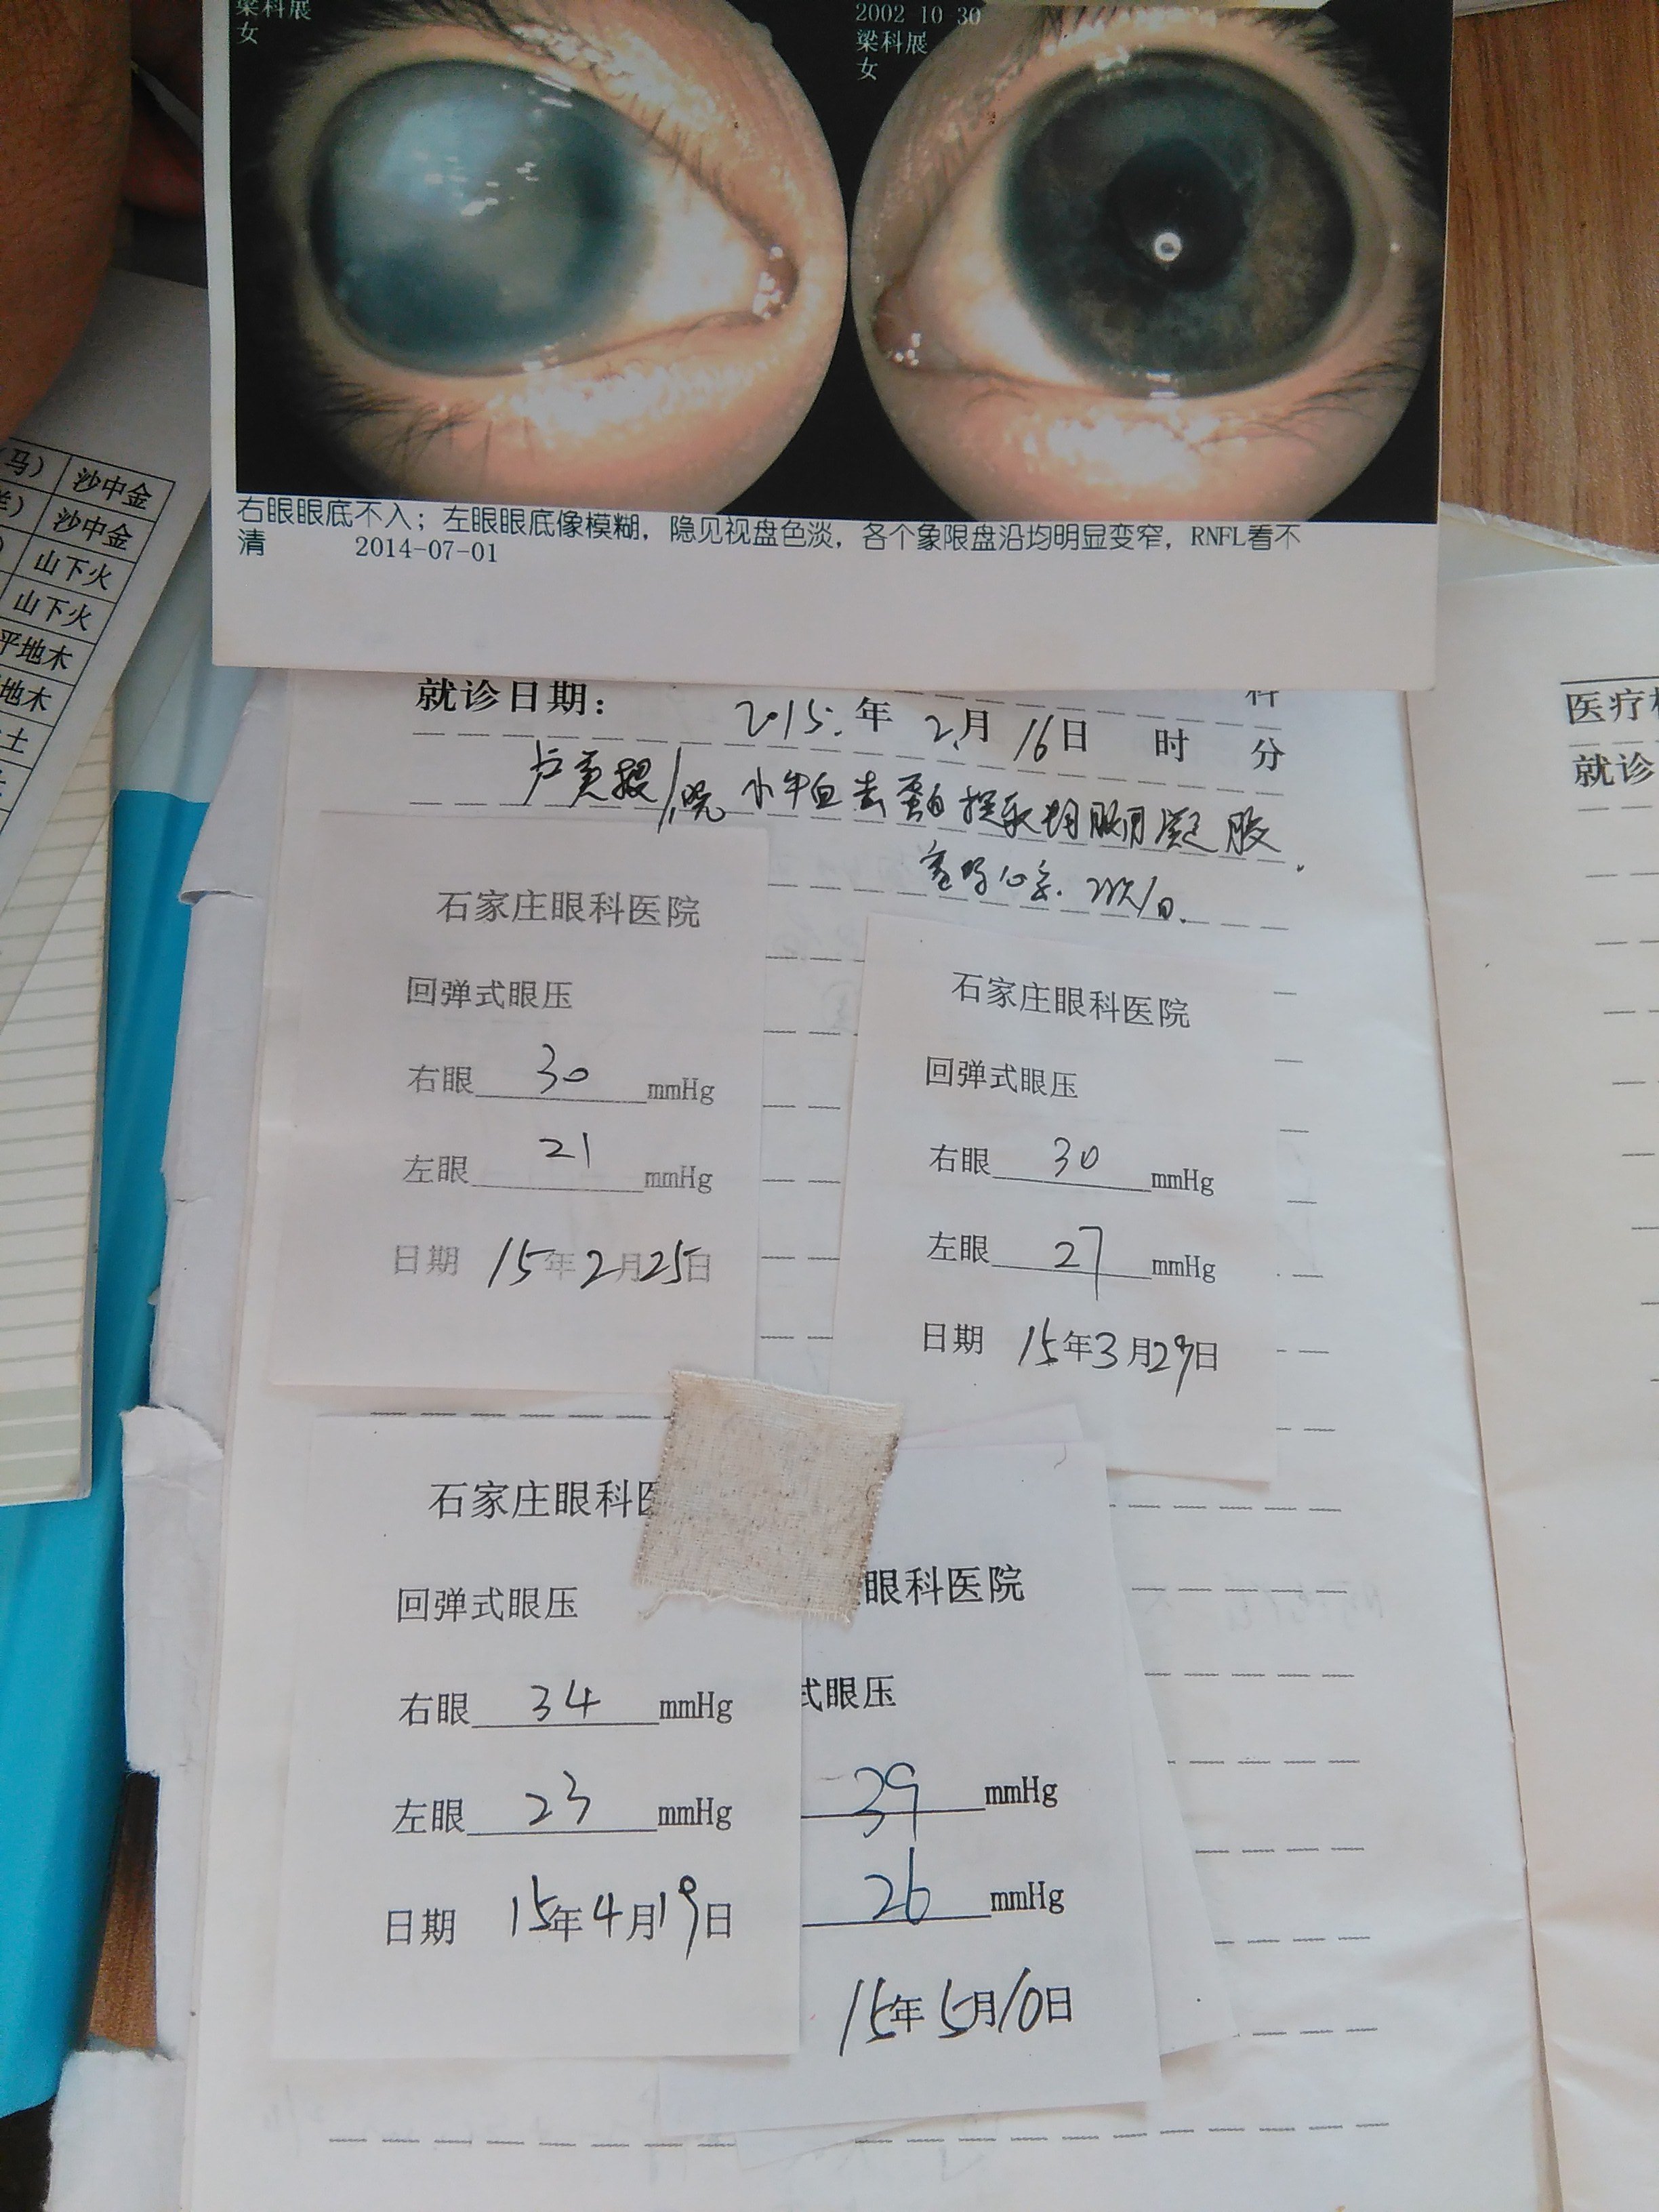 梁科展
女
2002 10 30
梁科展
女
右眼眼底不入；左眼眼底像模糊，隐见视盘色淡，各个象限盘沿均明显变窄，RNFL看不
清 2014-07-01
马） 沙中金
沙中金
山下火
山下火
平地木
地木
土
科
就诊日期： 2015.年 2.月 16日 时 分
小牛血去蛋白提取物眼用凝胶
石家庄眼科医院
回弹式眼压
右眼 30 mmHg
左眼 21 mmHg
日期 15年2月25日
石家庄眼科医院
回弹式眼压
右眼 30 mmHg
左眼 27 mmHg
日期 15年3月29日
石家庄眼科医
回弹式眼压
右眼 34 mmHg
左眼 23 mmHg
日期 15年4月19日
眼科医院
式眼压
39 mmHg
26 mmHg
15年5月10日
医疗
就诊